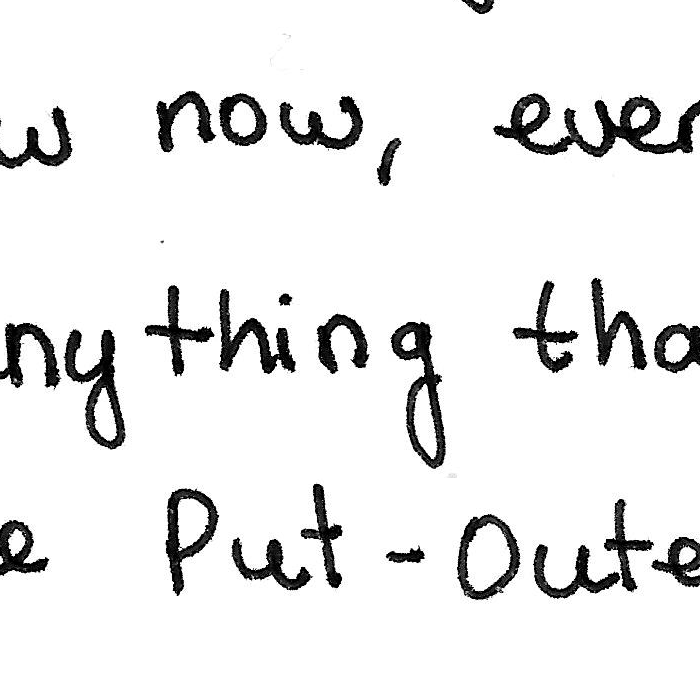 w now, ever
nything tha
e Put-Oute